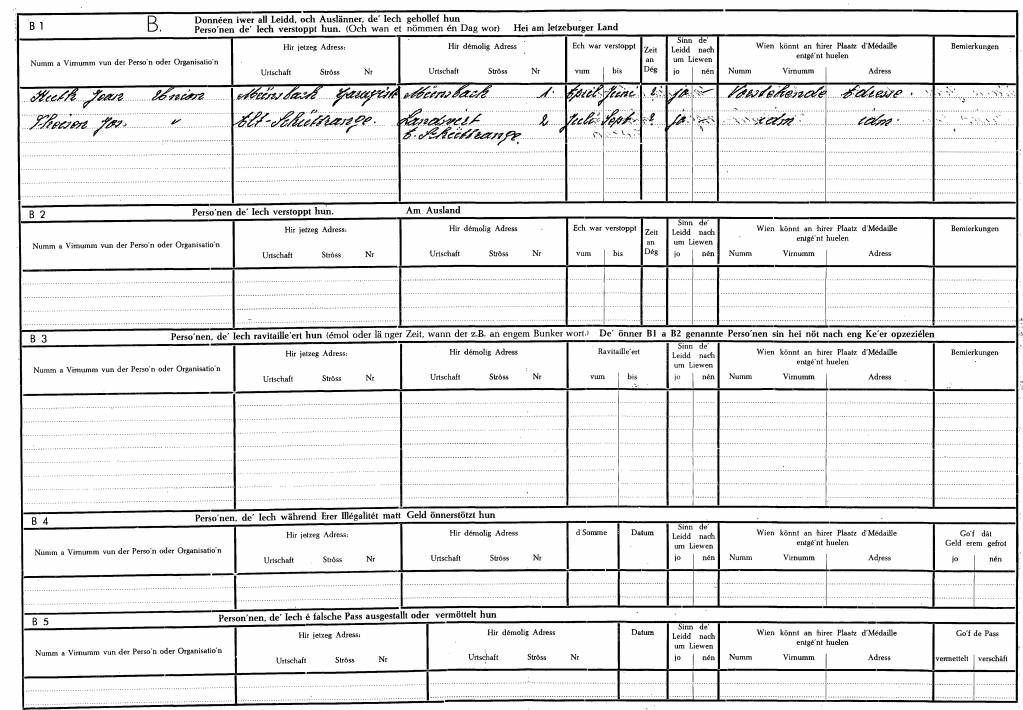 B 1 B. Donnéen iwer all Leidd, och Auslänner, de' Iech gehollef hun
Perso'nen de' Iech verstoppt hun. (Och wan et nömmen én Dag wor) Hei am letzeburger Land
Numm a Virnumm vun der Perso'n oder Organisatio'n
Hir jetzeg Adress:
Urtschaft Ströss Nr
Hir démolig Adress
Urtschaft Ströss Nr
Ech war verstoppt
vum bis
Zeit
an
Dég
Sinn de'
Leidd nach
um Liewen
jo nén
Wien könnt an hirer Plaatz d'Médaille
entgé'nt huelen
Numm Virnumm Adress
Bemierkungen
Jean Union Münsbach Münsbach 1. April Juni 2. jo Vorstehende Adresse.
Theisen Jos. " Alt-Schüttrange. Landwirt 2 Juli Sept. 2 jo idm idm.
t. Schüttrange.
B 2 Perso'nen de' Iech verstoppt hun. Am Ausland
Numm a Virnumm vun der Perso'n oder Organisatio'n
Hir jetzeg Adress:
Urtschaft Ströss Nr
Hir démolig Adress
Urtschaft Ströss Nr
Ech war verstoppt
vum bis
Zeit
an
Dég
Sinn de'
Leidd nach
um Liewen
jo nén
Wien könnt an hirer Plaatz d'Médaille
entgé'nt huelen
Numm Virnumm Adress
Bemierkungen
B 3 Perso'nen, de' Iech ravitaille'ert hun (émol oder länger Zeit, wann der z.B. an engem Bunker wort.) De' önner B1 a B2 genannte Perso'nen sin hei nöt nach eng Ke'er opzeziélen
Numm a Virnumm vun der Perso'n oder Organisatio'n
Hir jetzeg Adress:
Urtschaft Ströss Nr
Hir démolig Adress
Urtschaft Ströss Nr
Ravitaille'ert
vum bis
Sinn de'
Leidd nach
um Liewen
jo nén
Wien könnt an hirer Plaatz d'Médaille
entgé'nt huelen
Numm Virnumm Adress
Bemierkungen
B 4 Perso'nen, de' Iech während Erer Illégalitét matt Geld önnerstötzt hun
Numm a Virnumm vun der Perso'n oder Organisatio'n
Hir jetzeg Adress:
Urtschaft Ströss Nr
Hir démolig Adress
Urtschaft Ströss Nr
d'Somme
Datum
Sinn de'
Leidd nach
um Liewen
jo nén
Wien könnt an hirer Plaatz d'Médaille
entgé'nt huelen
Numm Virnumm Adress
Go'f dât
Geld erem gefrot
jo nén
B 5 Person'nen, de' Iech é falsche Pass ausgestallt oder vermöttelt hun
Numm a Virnumm vun der Perso'n oder Organisatio'n
Hir jetzeg Adress:
Urtschaft Ströss Nr
Hir démolig Adress
Urtschaft Ströss Nr
Datum
Sinn de'
Leidd nach
um Liewen
jo nén
Wien könnt an hirer Plaatz d'Médaille
entgé'nt huelen
Numm Virnumm Adress
Go'f de Pass
vermettelt verschâft